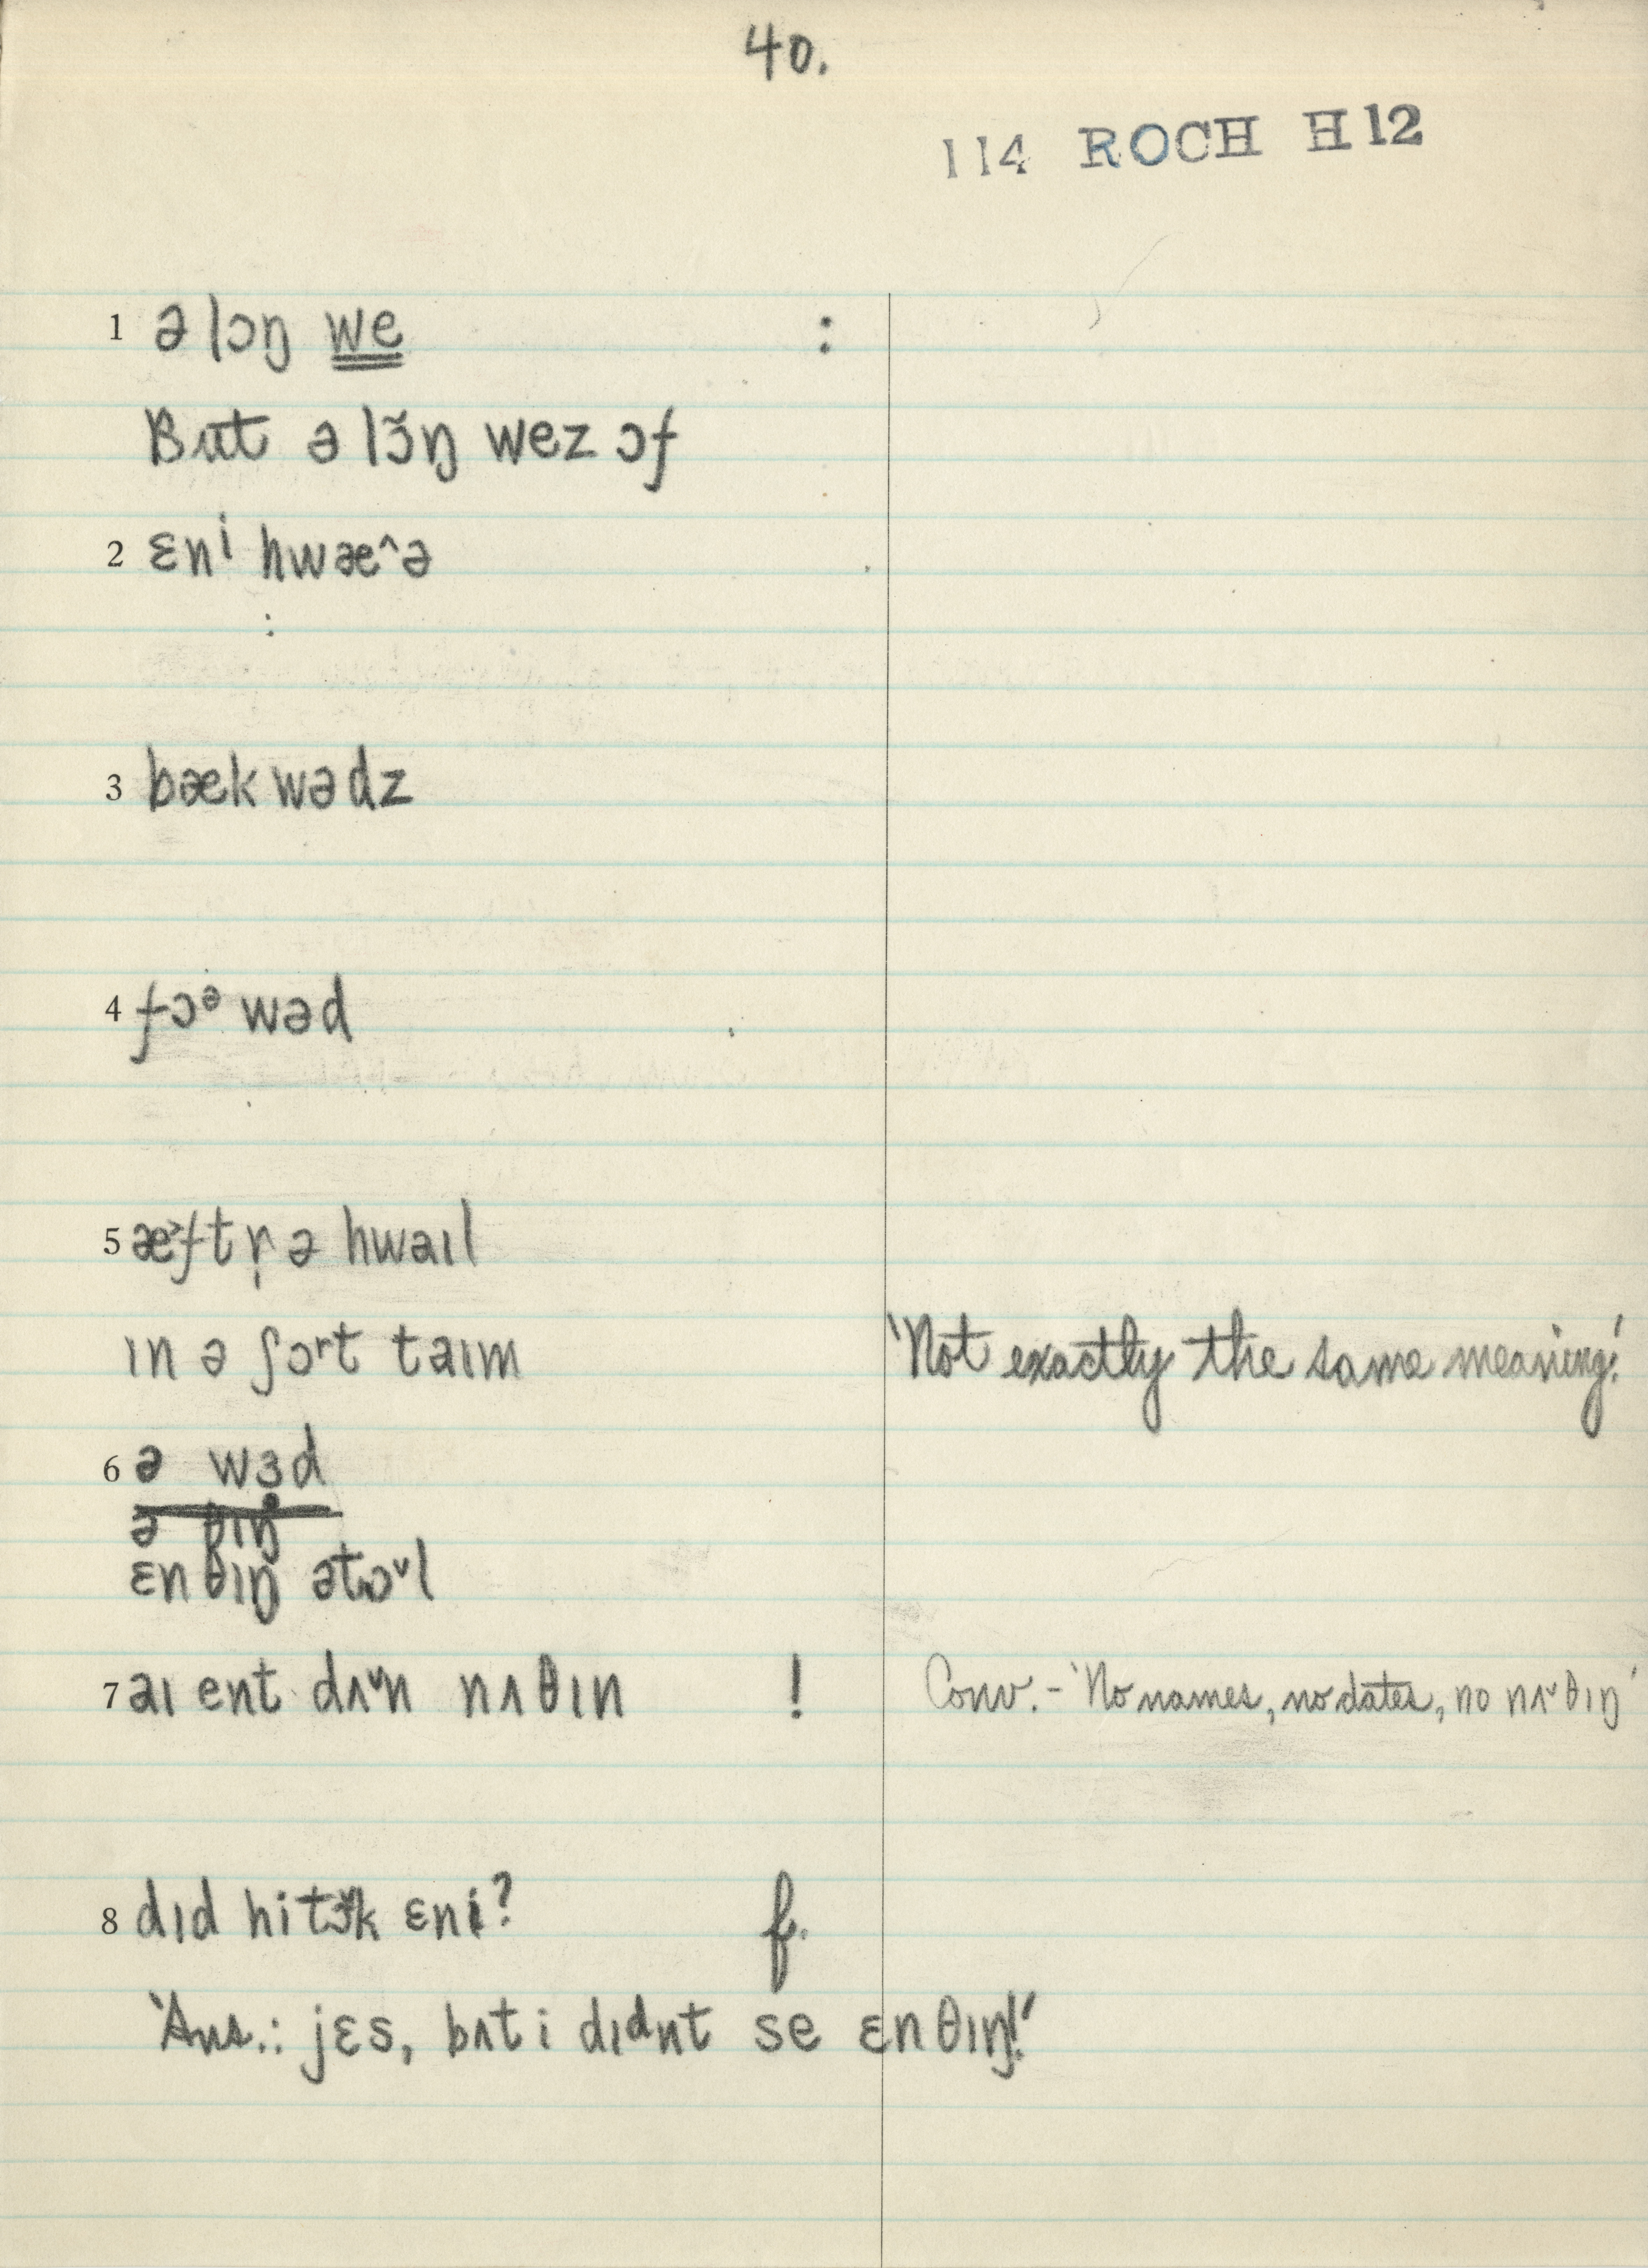 40.
114 ROCH H12
1 ə lɔŋ we :
But ə lɔ̌ŋ wez ɔf
2 ɛnⁱ hwæ^ə
:
3 bækwədz
4 fɔᵊwəd
5 æ˃ftr̩ ə hwaɪl
ɪn ə ʃɔrt taɪm 'Not exactly the same meaning.'
6 ə wɜd
ə θɪŋ
ɛnθɪŋ ətɔ˅l
7 aɪ ent dʌ˅n nʌθɪn ! Conv. - 'No names, no dates, no nʌ˅θɪŋ'
8 dɪd hi tɔ̌k ɛni? f.
'Ans.: jɛs, bʌt i dɪdnt se ɛnθɪŋ!'